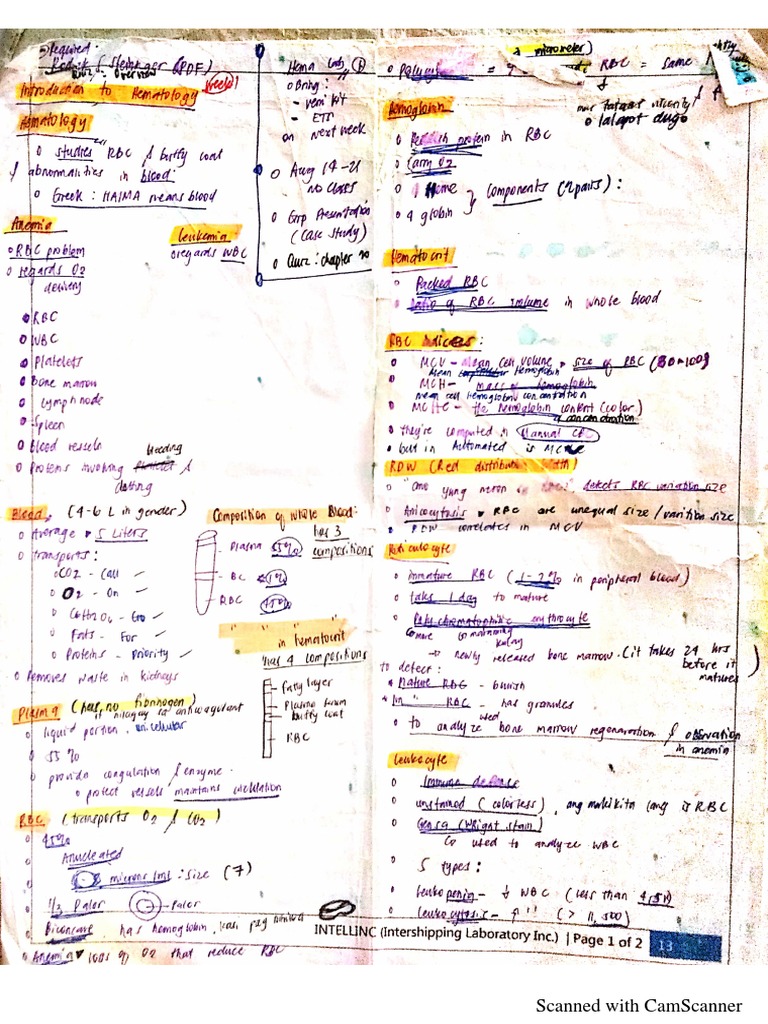 Required:
Rodak's
(PDF)
Introduction to Hematology
Week 1
Hematology
o studies RBC & buffy coat
& abnormalities in blood
o Greek: HAIMA means blood
Anemia
o RBC problem
o regards O2
delivery
Leukemia
o regards WBC
o RBC
o WBC
o Platelets
o Bone marrow
o Lymph node
o Spleen
o Blood vessels
bleeding
o Proteins involving &
clotting
Hema Lab
o Bring:
- veni kit
- ETS
on next week
o Aug 14-21
NO CLASS
o Grp Presentation
(Case Study)
o Quiz: chapter
Blood (4-6 L in gender)
o Average 5 Liters
o transports:
o CO2 - Call
o O2 - On
o C6H12O6 -
o Fats - For
o Proteins - Priority
o Removes waste in kidneys
Composition of Whole Blood:
has 3
compositions
Plasma 55%
BC <1%
RBC 45%
" " "
in hematocrit
has 4 compositions
Fatty layer
Plasma
buffy coat
RBC
Plasma (has no fibrinogen)
if nilagay sa anticoagulant
o liquid portion,
o 55 %
o provide coagulation & enzyme
o protect vessels maintains circulation
RBC (transports O2 & CO2)
o 45%
Anucleated
microns : size (7)
1/3 Palor
- Palor
o Biconcave has hemoglobin,
o Anemia loss of O2 that reduce RBC
micrometer)
RBC = same
o lalapot dugo
Hemoglobin
o Reddish protein in RBC
o Carry O2
o 4 Heme
o 4 globin
Components (2 pairs):
Hematocrit
o Packed RBC
o Ratio of RBC volume in whole blood
RBC Indices:
o MCV - Mean Cell Volume size of RBC (80-100)
Mean Hemoglobin
o MCH - mass of hemoglobin
mean cell Hemoglobin concentration
o MCHC - the hemoglobin content (color)
concentration
o they're computed in Manual CBC
o but in Automated is MCV
RDW (Red distribution width)
detects RBC variation size
o Anisocytosis RBC are unequal size/varition size
o RDW correlates in MCV
Reticulocyte
o immature RBC (1-2% in peripheral blood)
o takes 1 day to mature
o Polychromatophilic erythrocyte
kulay
→ newly released bone marrow (it takes 24 hrs
before it
matures)
to detect:
* Mature RBC - bluish
* Im" RBC - has granules
used
o to analyze bone marrow regenaration & observation
in anemia
Leukocyte
o Immune defense
o unstained (colorless), ang makikita lang is RBC
o Gensa (Wright stain)
used to analyze WBC
o 5 types:
o Leukopenia - ↓ WBC (less than 4,500)
o Leukocytosis - ↑ " (> 11,500)
INTELLINC (Intershipping Laboratory Inc.) | Page 1 of 2 13
Scanned with CamScanner